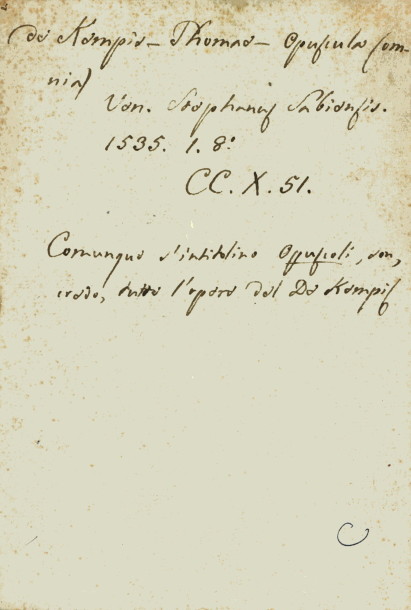 de Kempis - Thomae - Opuscula (om-
nia)
Ven. Stephanus Sabiensis.
1535. 1. 8.°
CC. X. 51.
Comunque s'intitolino Opuscoli, son,
credo, tutte l'opere del De Kempis
C